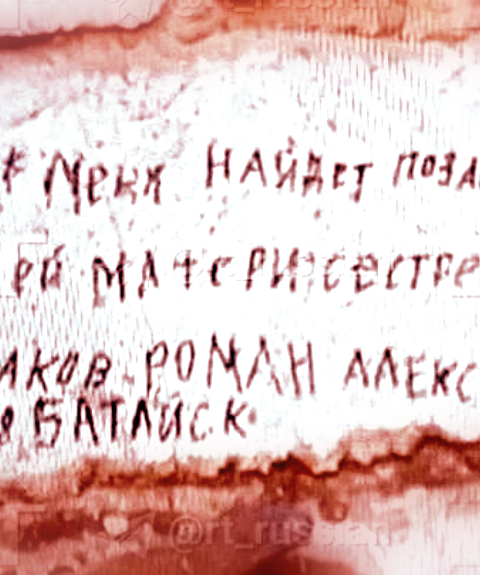 Меня НАЙДЕТ ПОЗА
ЕЙ МАТЕРИ И СЕСТРЕ
АКОВ РОМАН АЛЕКС
БАТАЙСК
@rt_russian